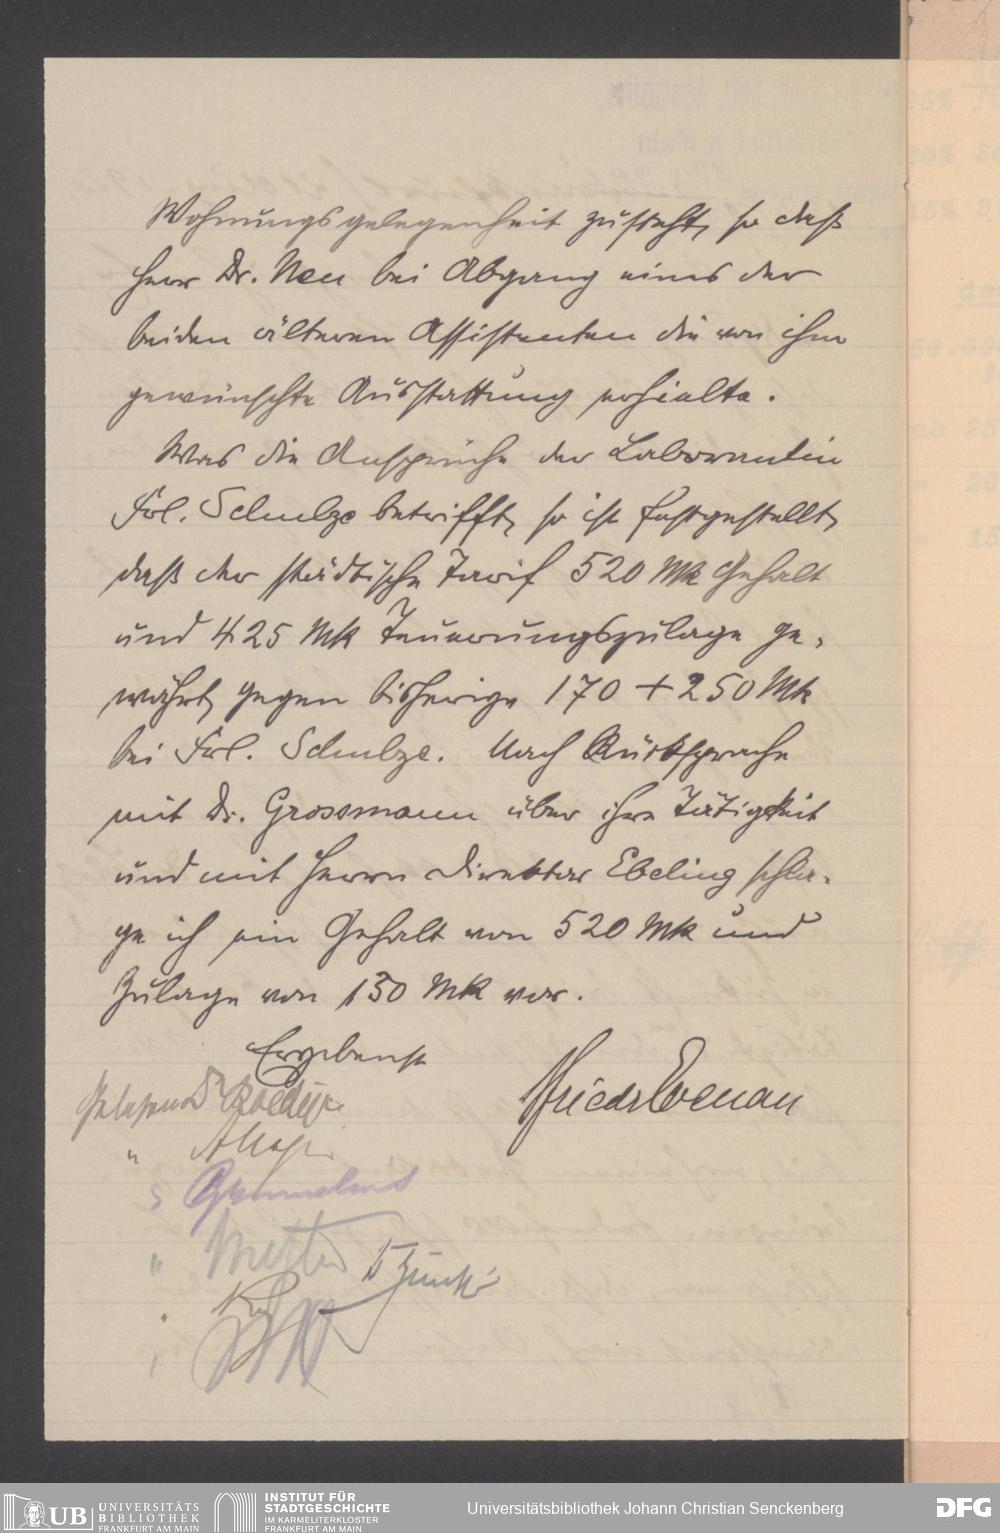 Wohnungsgelegenheit zusteht, so daß
Herr Dr. Neu bei Abgang eines der
beiden älteren Assistenten die von ihm
gewünschte Ausstattung erhielte.
Was die Ansprüche der Laborantin
Frl. Schulze betrifft, so ist festgestellt,
daß der städtische Tarif 520 Mk Gehalt
und 425 Mk Teuerungszulage ge-
währt, gegen bisherige 170 + 250 Mk
bei Frl. Schulze. Nach Rücksprache
mit Dr. Grossmann über ihre Tätigkeit
und mit Herrn Direktor Ebeling schla-
ge ich ein Gehalt von 520 Mk und
Zulage von 130 Mk vor.
Ergebenst
Gelesen Dr Roediger
"
"
UB UNIVERSITÄTS
BIBLIOTHEK
FRANKFURT AM MAIN
INSTITUT FÜR
STADTGESCHICHTE
IM KARMELITERKLOSTER
FRANKFURT AM MAIN
Universitätsbibliothek Johann Christian Senckenberg
DFG